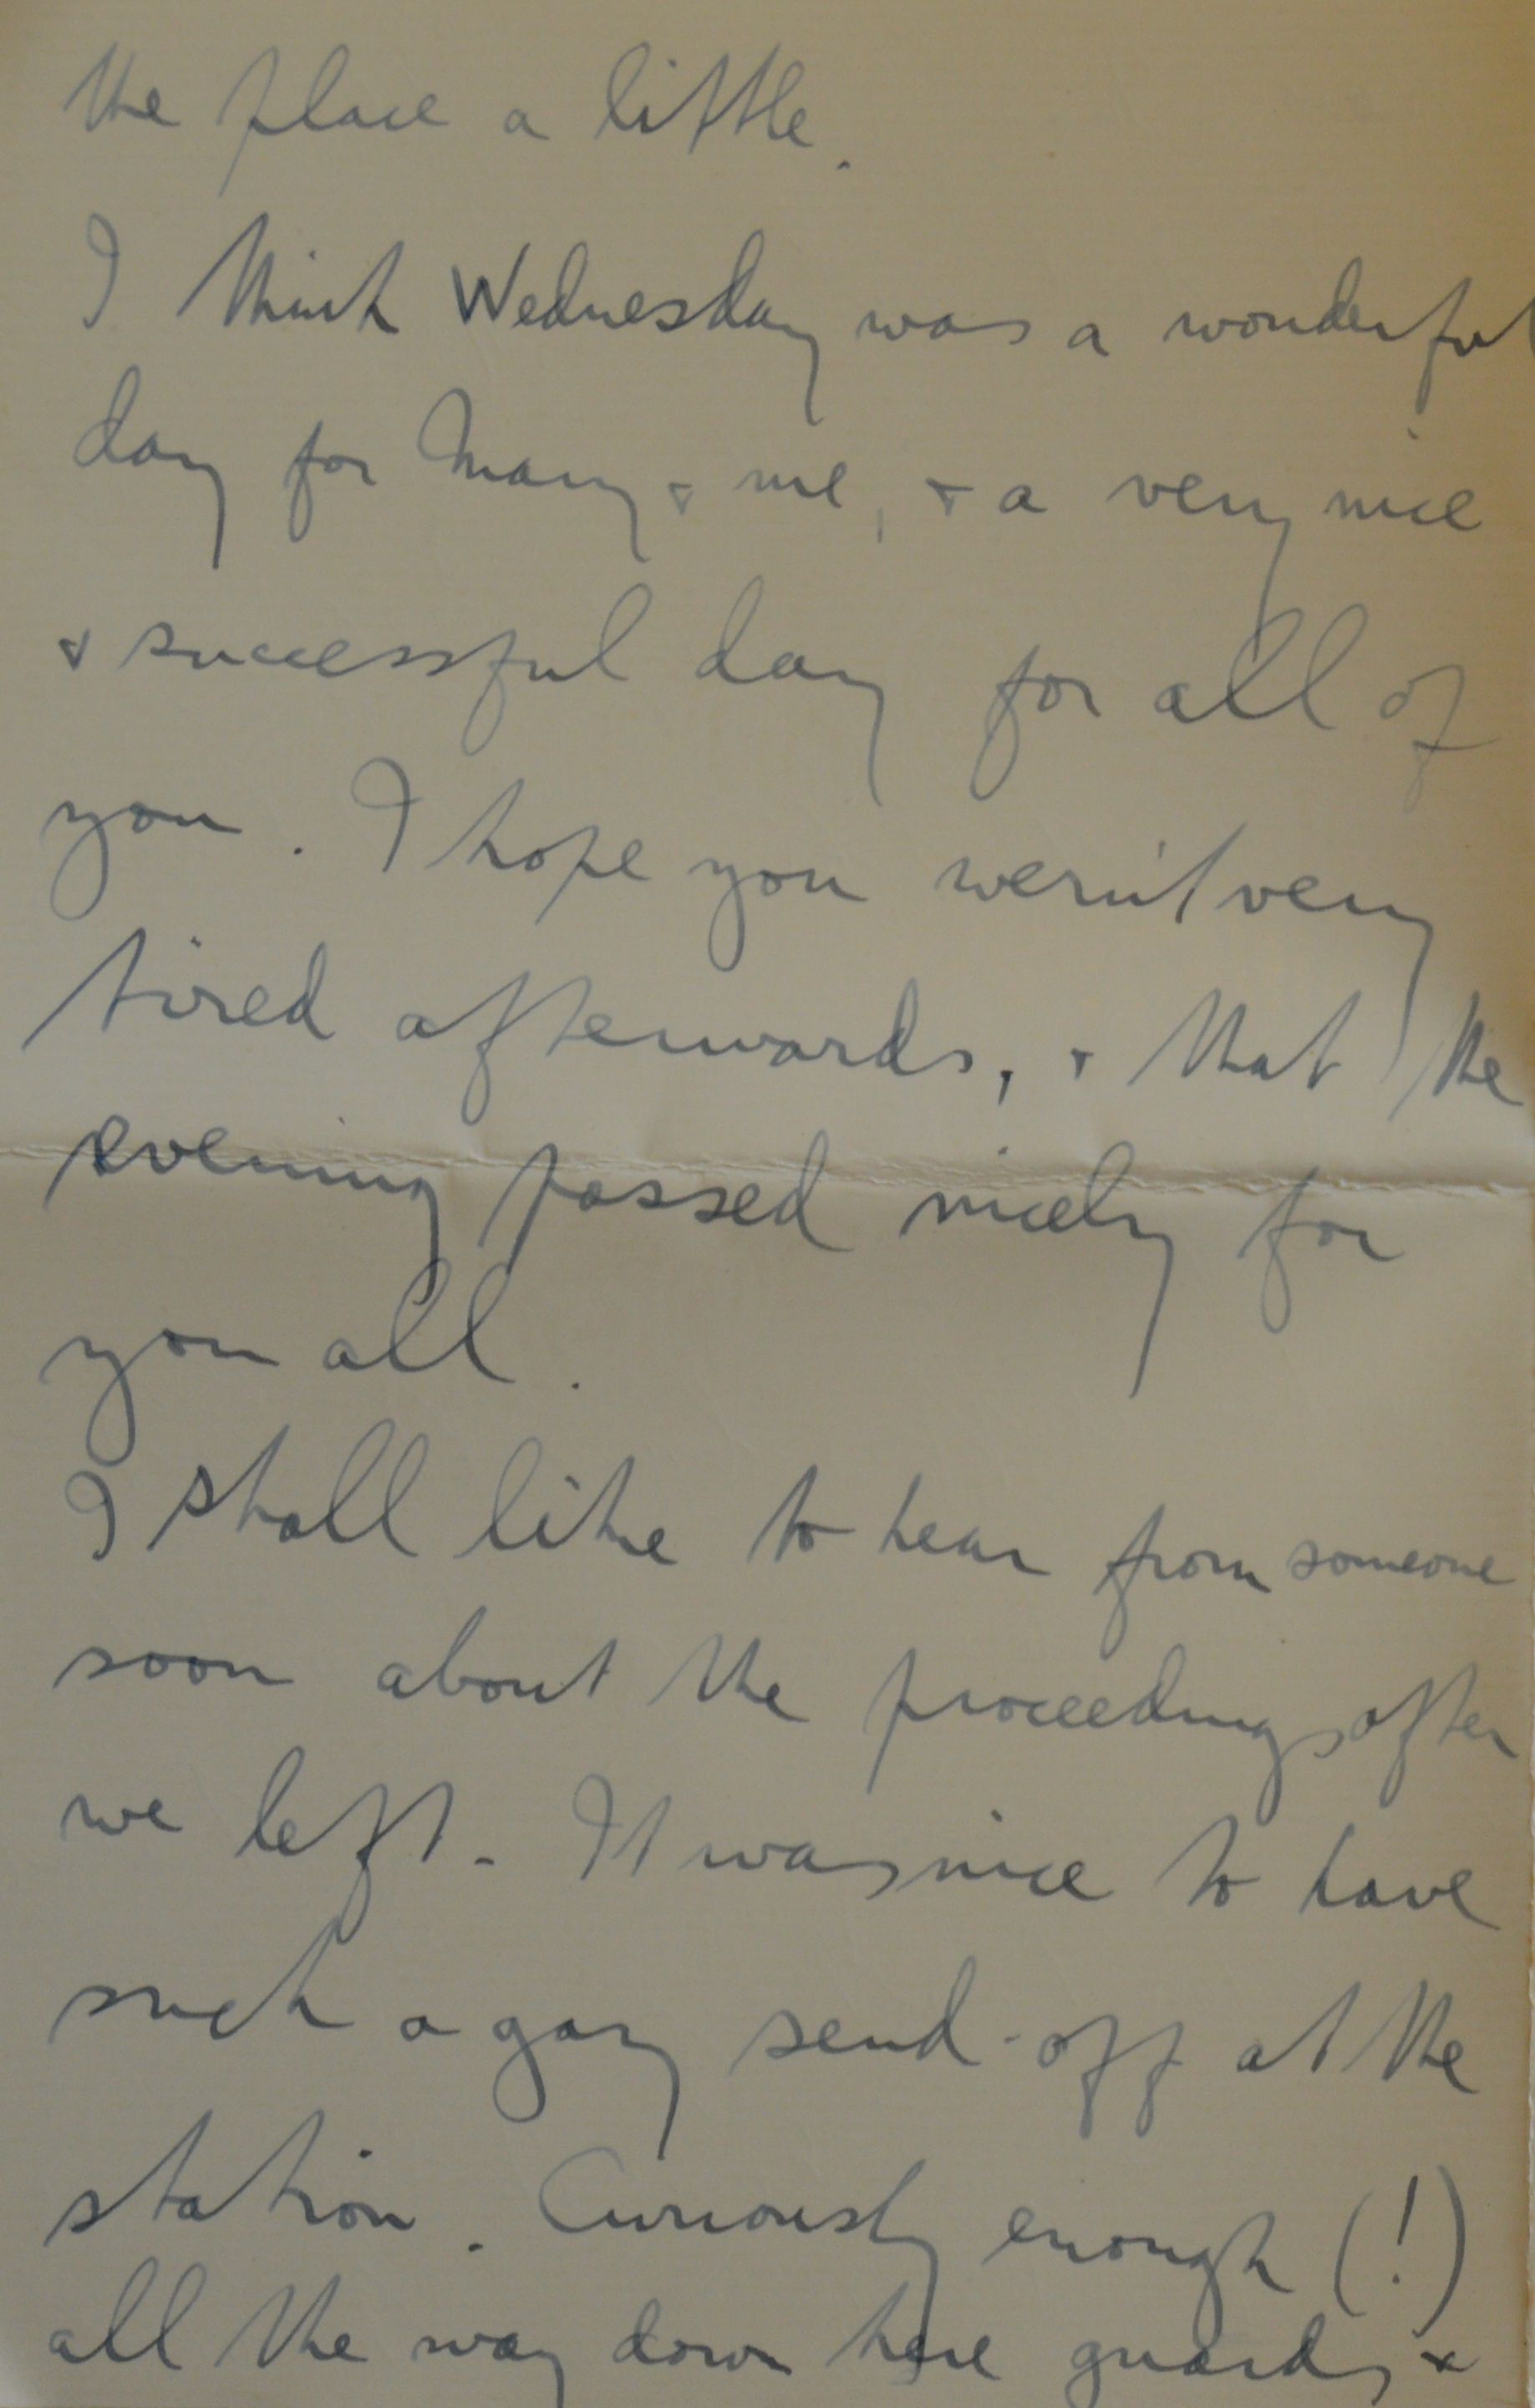 the place a little.
I think Wednesday was a wonderful
day for Mary & me, & a very nice
& successful day for all of
you. I hope you wern't very
tired afterwards, & that the
evening passed nicely for
you all.
I shall like to hear from someone
soon about the proceedings after
we left. It was nice to have
such a gay send-off at the
station. Curiously enough (!)
all the way down here guards &